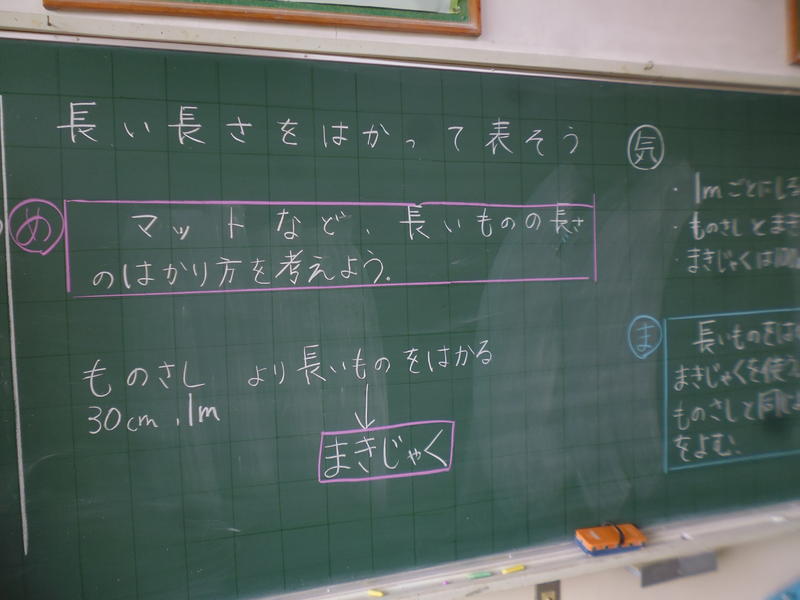 長い長さをはかって表そう
め
マットなど、長いものの長さ
のはかり方を考えよう.
ものさし より長いものをはかる
30cm、1m
まきじゃく
気
・1mごとにしる
・ものさしとまき
・まきじゃくは100
ま
長いものをは
まきじゃくを使う
ものさしと同じ
をよむ、